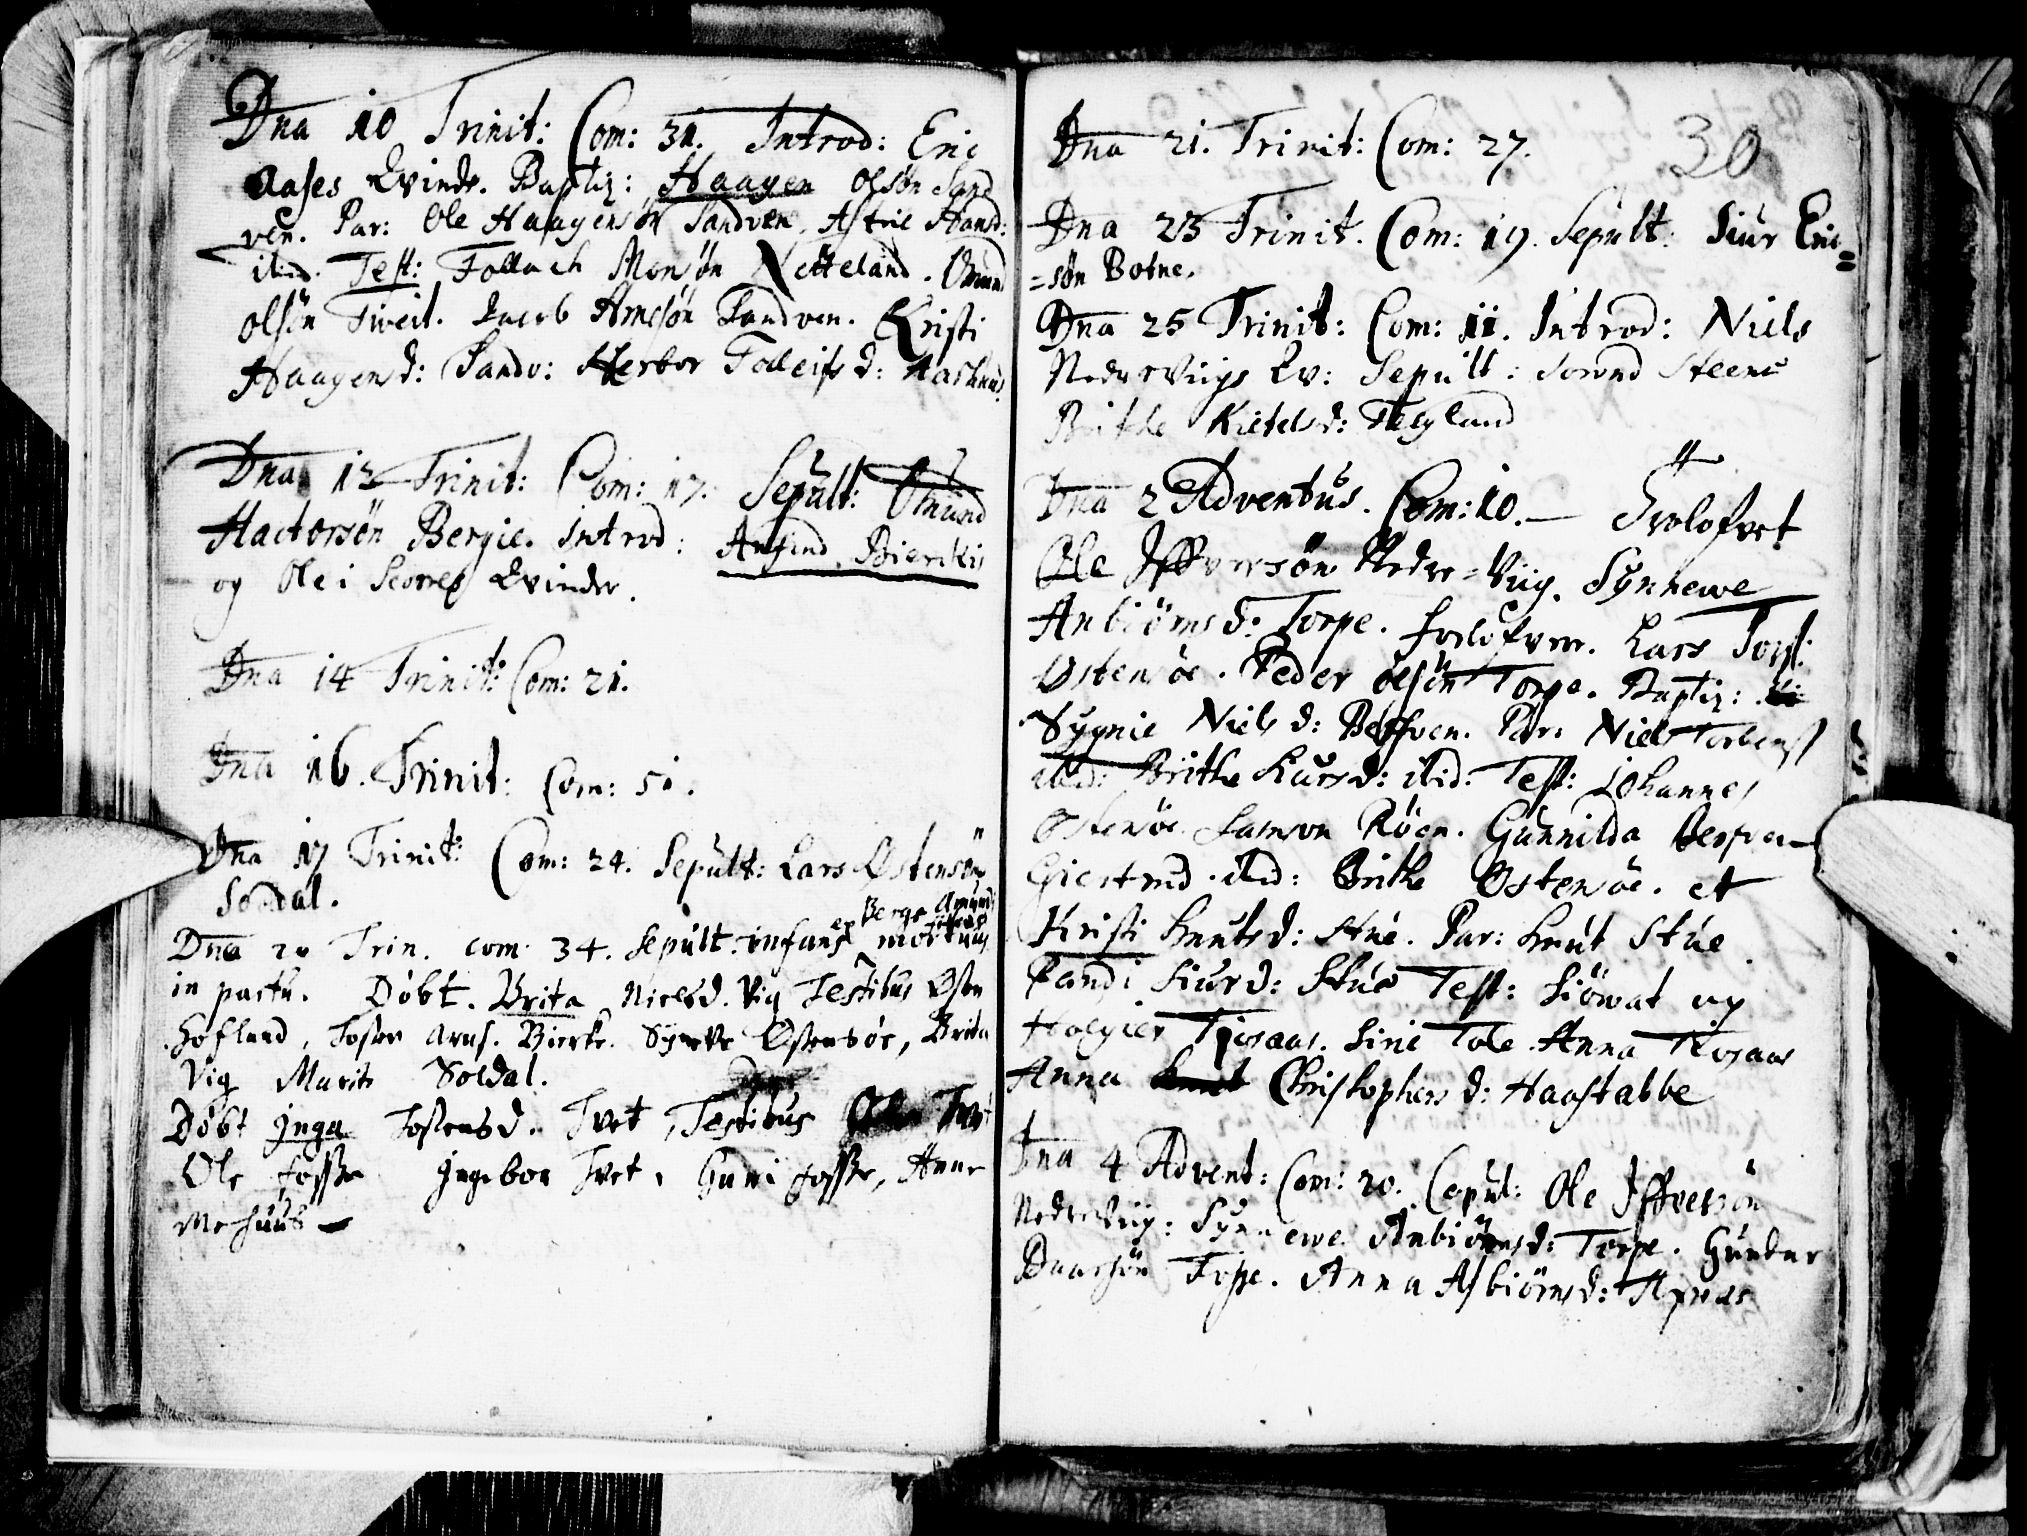 Dna 10 Trinit: Com: 31. Introd: Eric
Aases Kvinde. Baptiz: Haagen Olsøn Sand
ven. Par: Ole Haagensøn Sandven. Astrie Hansd:
ibid. Test: Follach Monsøn Netteland. Omund
Olsøn Tweit. Jacob Arnesøn Sandven. Kristi
Haagensd: Sandv: Herbor Tolleifsd: Aashuus.
Dna 12 Trinit: Com: 17. Sepult: Omund
Hactorsøn Bergie. Introd: Anfind Bierckis
og Ole i Kvinder.
Dna 14 Trinit: Com: 21.
Dna 16. Trinit: Com: 51.
Dna 17 Trinit: Com: 24. Sepult: Lars Østensøn
Soldal.
Berge Amund
Dna 20 Trin. com. 34. sepult. infans mortuus
in partu. Døbt. Brita Nielsd. Vig Testibus Østen
Hofland, Tosten Arns. Bierke. Østensøe, Brita
Vig Marite Soldal.
Døbt Inga Tostensd. Tvet, Testibus Ole Tvet
Ole Fosse Ingebor Tvet, Guni Fosse, Anne
Mehuus
30
Dna 21. Trinit: Com: 27.
Dna 23 Trinit. Com: 19. Sepult: Siur Eric=
=søn Botne.
Dna 25 Trinit: Com: 11. Introd: Niels
Nedre Viigs Kv: Sepult: Steene
Brithe Kietelsd: Tegland
Dna 2 Adventus. Com: 10. — Trolofvet
Ole Iffversøn Nedre=Viig. Synnewe
Anbiørnsd: Torpe. Forlofver. Lars Torst:
Ostensøe. Peder Olsøn Torpe. Baptiz:
Sygnie Nielsd: Berfven. Par: Niels Torbens
ibid: Brithe Larsd: ibid: Test: Johannes
Ostensøe Samson Røen. Gunnilda Berfven
Giertrud ibid: Brithe Ostensøe. et
Kristi Knutsd: Stue. Par: Knut Stue
Randi Siurd: Stue Test: Siøwat og
Holgier Tiosaas. Sirie Tole. Anna Tiosaas
Anna Christophersd: Haastabbe
Dna 4 Advent: Com: 20. Copul: Ole Iffversøn
Nedre Viig: Synnewe Anbiørnsd: Torpe. Gunder
Baarsøn Torpe. Anna Asbiørnsd: